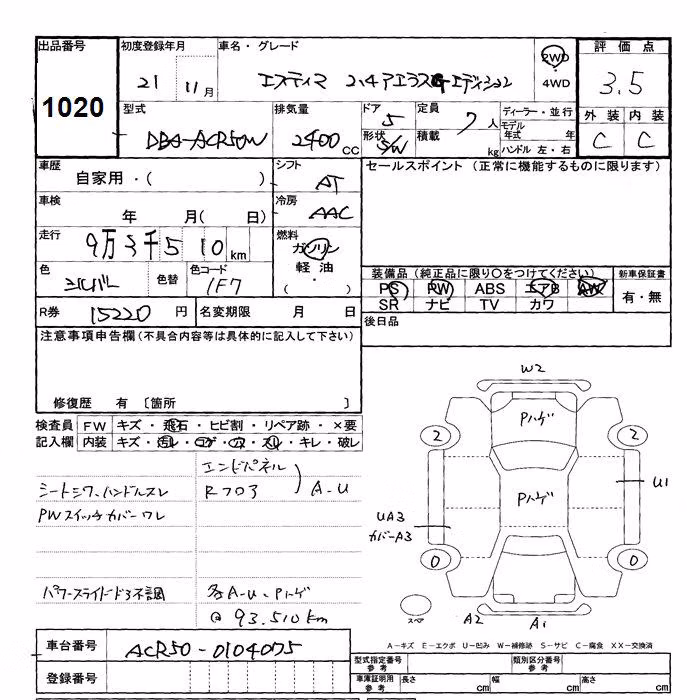 出品番号 初度登録年月 車名・グレード 2WD 評価点
1020 21 11月 エスティマ 2.4アエラスGエディション 4WD 3.5
型式 排気量 ドア 5 定員 7人 ディーラー・並行 外装 内装
DBA-ACR50W 2400cc 形状 S/W 積載 kg モデル年式 年 C C
ハンドル 左・右
車歴 自家用・( ) シフト AT セールスポイント (正常に機能するものに限ります)
車検 年 月( 日) 冷房 AAC
走行 9万3千510km 燃料 ガソリン
軽油
( ・ )
色 シルバー 色替 色コード 1F7
装備品 (純正品に限り○をつけてください) 新車保証書
PS PW ABS エアB AW 有・無
SR ナビ TV カワ
R券 15220円 名変期限 月 日 後日品
注意事項申告欄(不具合内容等は具体的に記入して下さい)
修復歴 有 〔箇所 〕
検査員 FW キズ・飛石・ヒビ割・リペア跡・×要
記入欄 内装 キズ・汚レ・コゲ・穴・スレ・キレ・破レ
エンドパネル
シートシワ、ハンドルスレ Rフロア A-U
PWスイッチカバーワレ
パワースライドドア不調 各A-U、Pハゲ
@93.510km
W2
Pハゲ
2 2
Pハゲ U1
UA3
カバーA3
0 0
スペア A2 A1
A-キズ E-エクボ U-凹み W-補修跡 S-サビ C-腐食 XX-交換済
車台番号 ACR50-0104075
登録番号
型式指定番号 参考 類別区分番号 参考
車庫証明用 参考 長さ cm 幅 cm 高さ cm